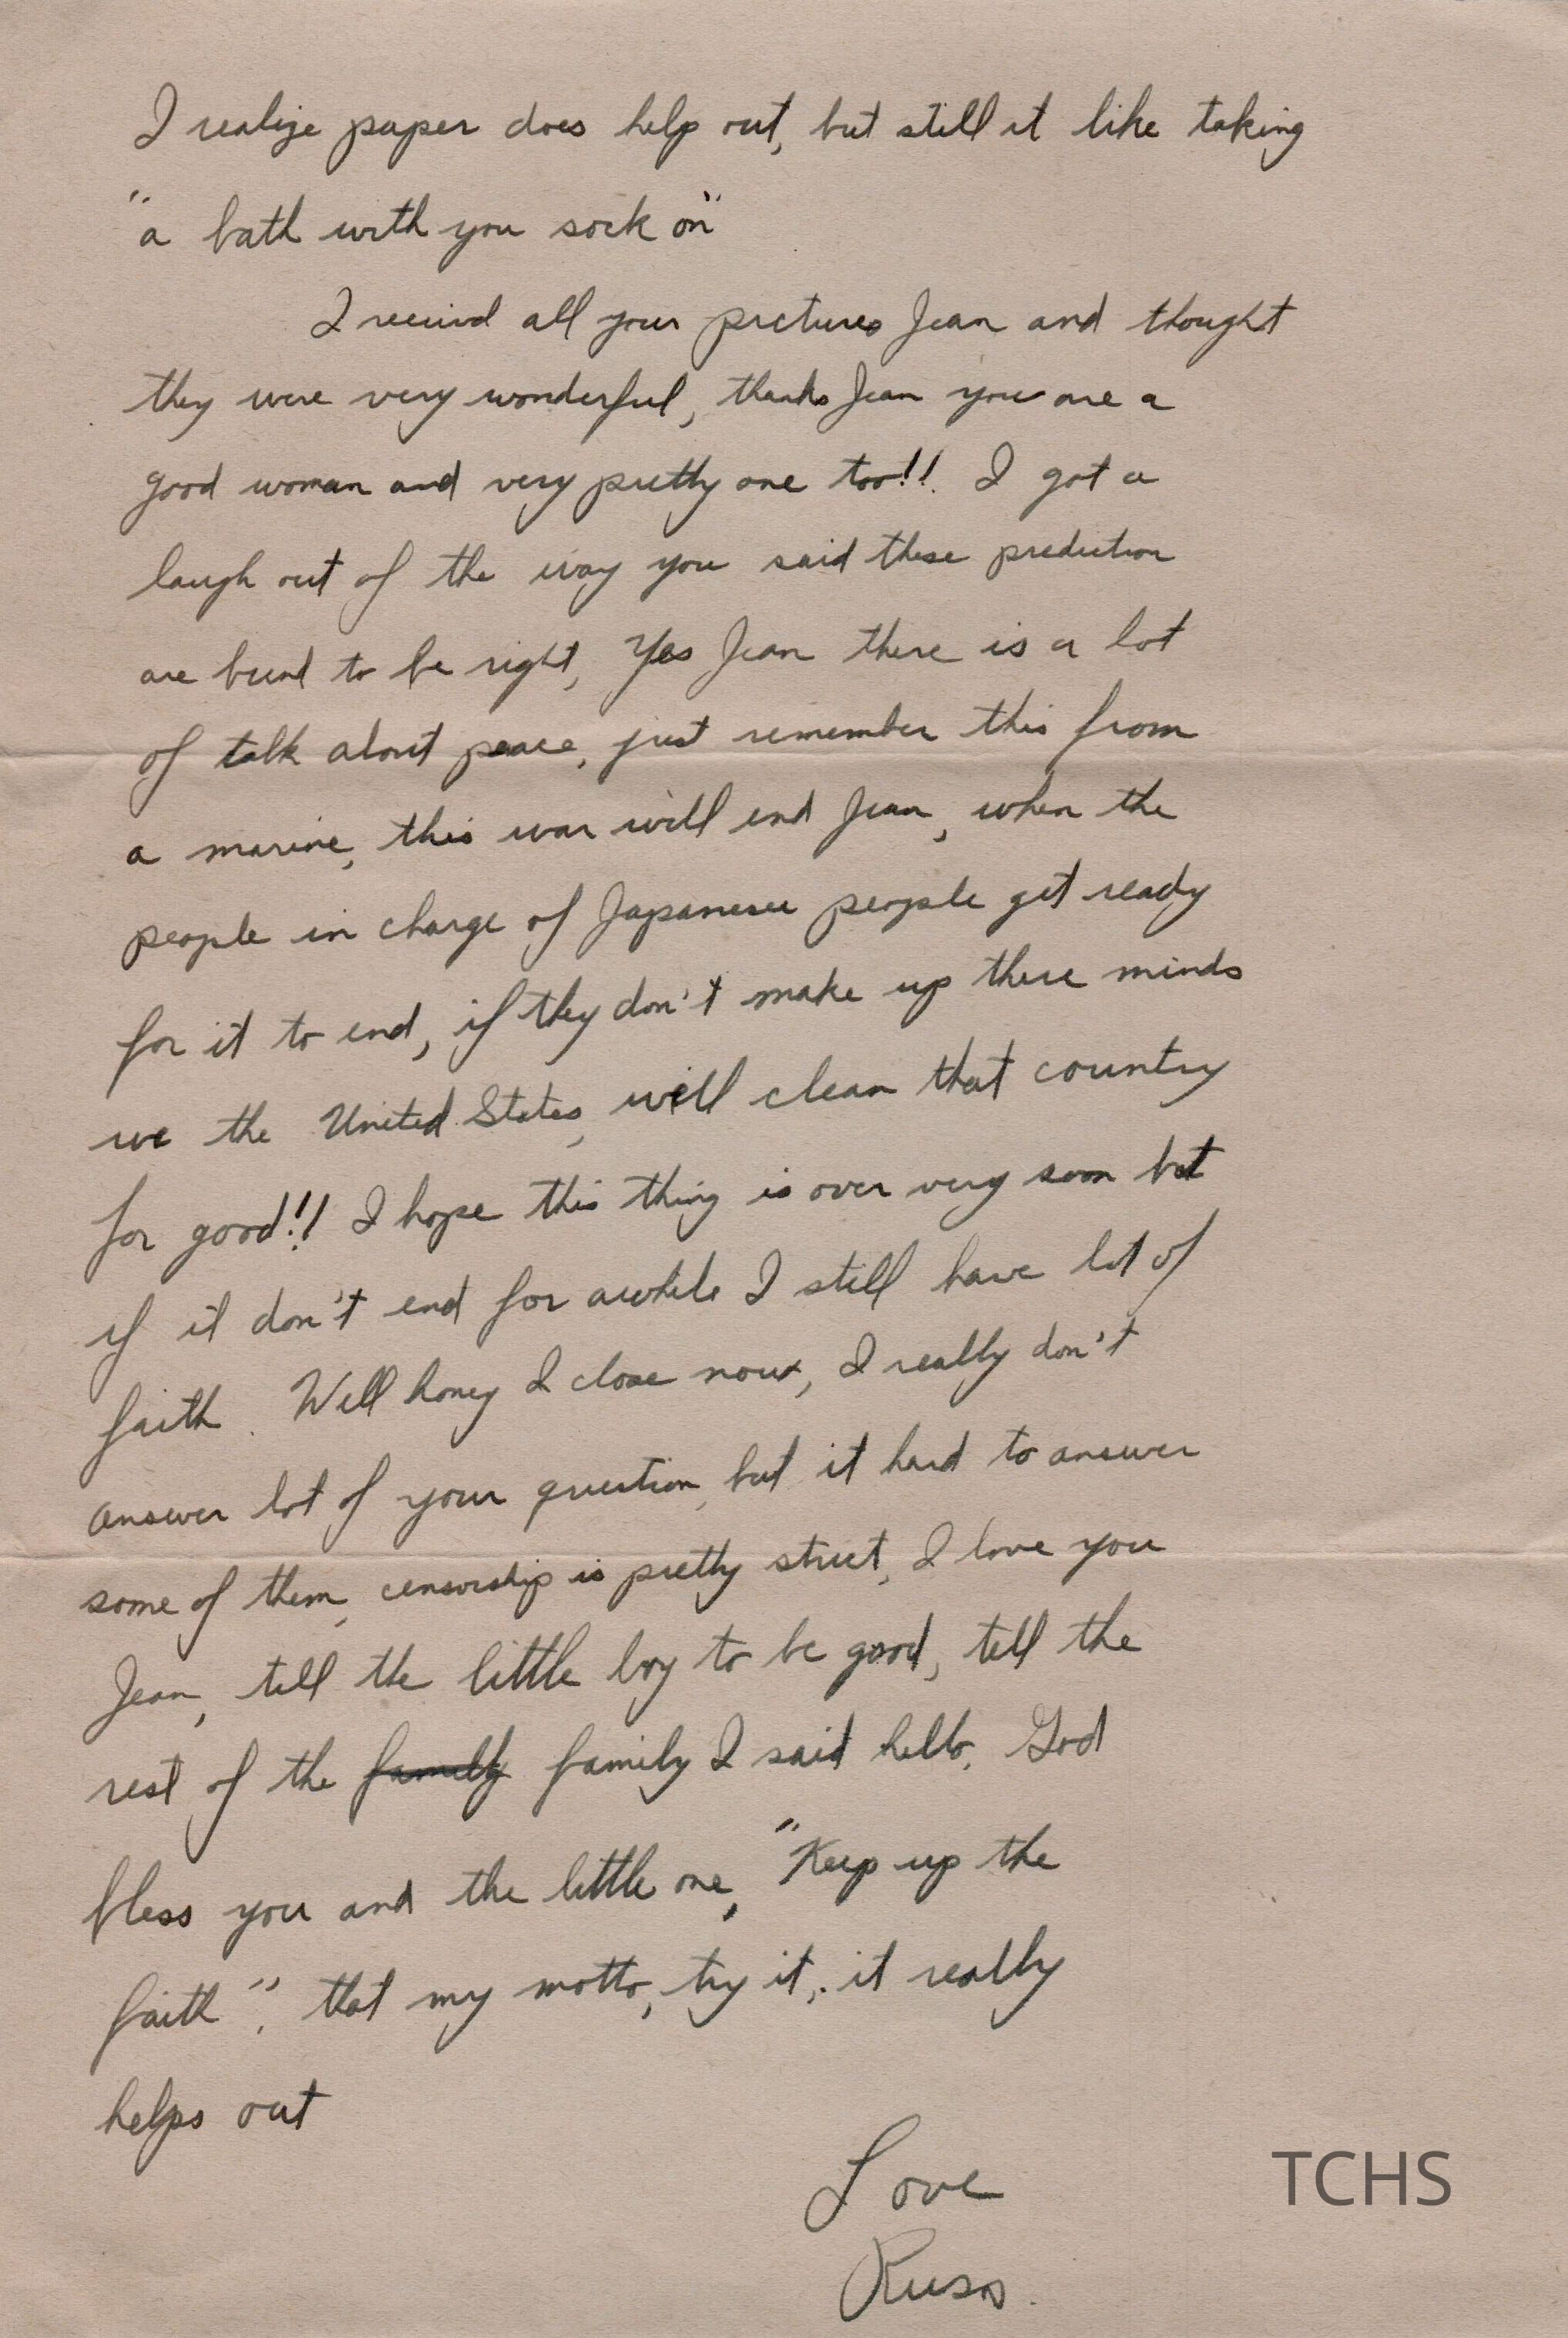 I realize paper does help out, but still it like taking
"a bath with you sock on"
I received all your pictures Jean and thought
they were very wonderful, thanks Jean you are a
good woman and very pretty one too!! I got a
laugh out of the way you said these prediction
are bund to be right, Yes Jean there is a lot
of talk about peace, just remember this from
a marine, this war will end Jean, when the
people in charge of Japanese people get ready
for it to end, if they don't make up there minds
we the United States, will clean that country
for good!! I hope this thing is over very soon but
if it don't end for awhile I still have lot of
faith. Well honey I close now, I really don't
answer lot of your question, but it hard to answer
some of them, censorship is pretty strict, I love you
Jean, tell the little boy to be good, tell the
rest of the family family I said hello. God
bless you and the little one, "Keep up the
faith". that my motto, try it, it really
helps out
Love
Russ.
TCHS